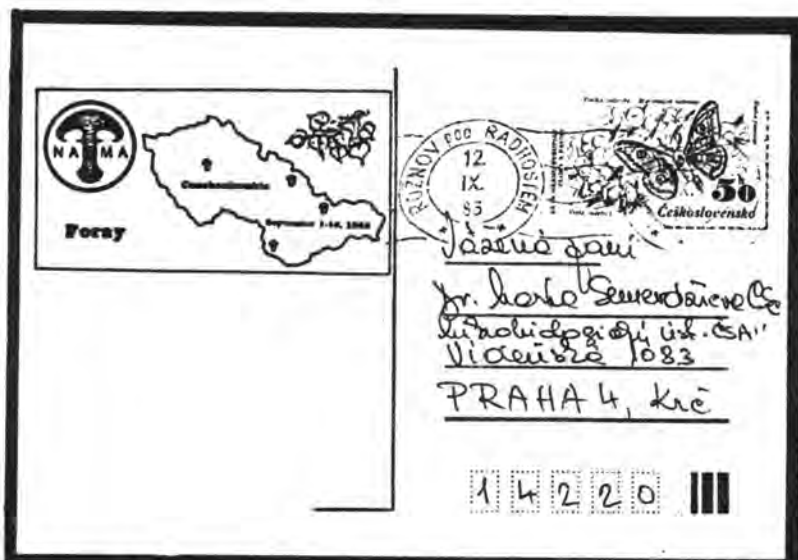 NAMA
Czechoslovakia
Foray
ROŽNOV POD RADHOŠTĚM
12.
IX.
85
50
Československo
Vážená paní
Dr. Marta Semerdžieva CSc
Mikrobiologický úst. ČSAV
Vídeňská 1083
PRAHA 4, Krč
14220